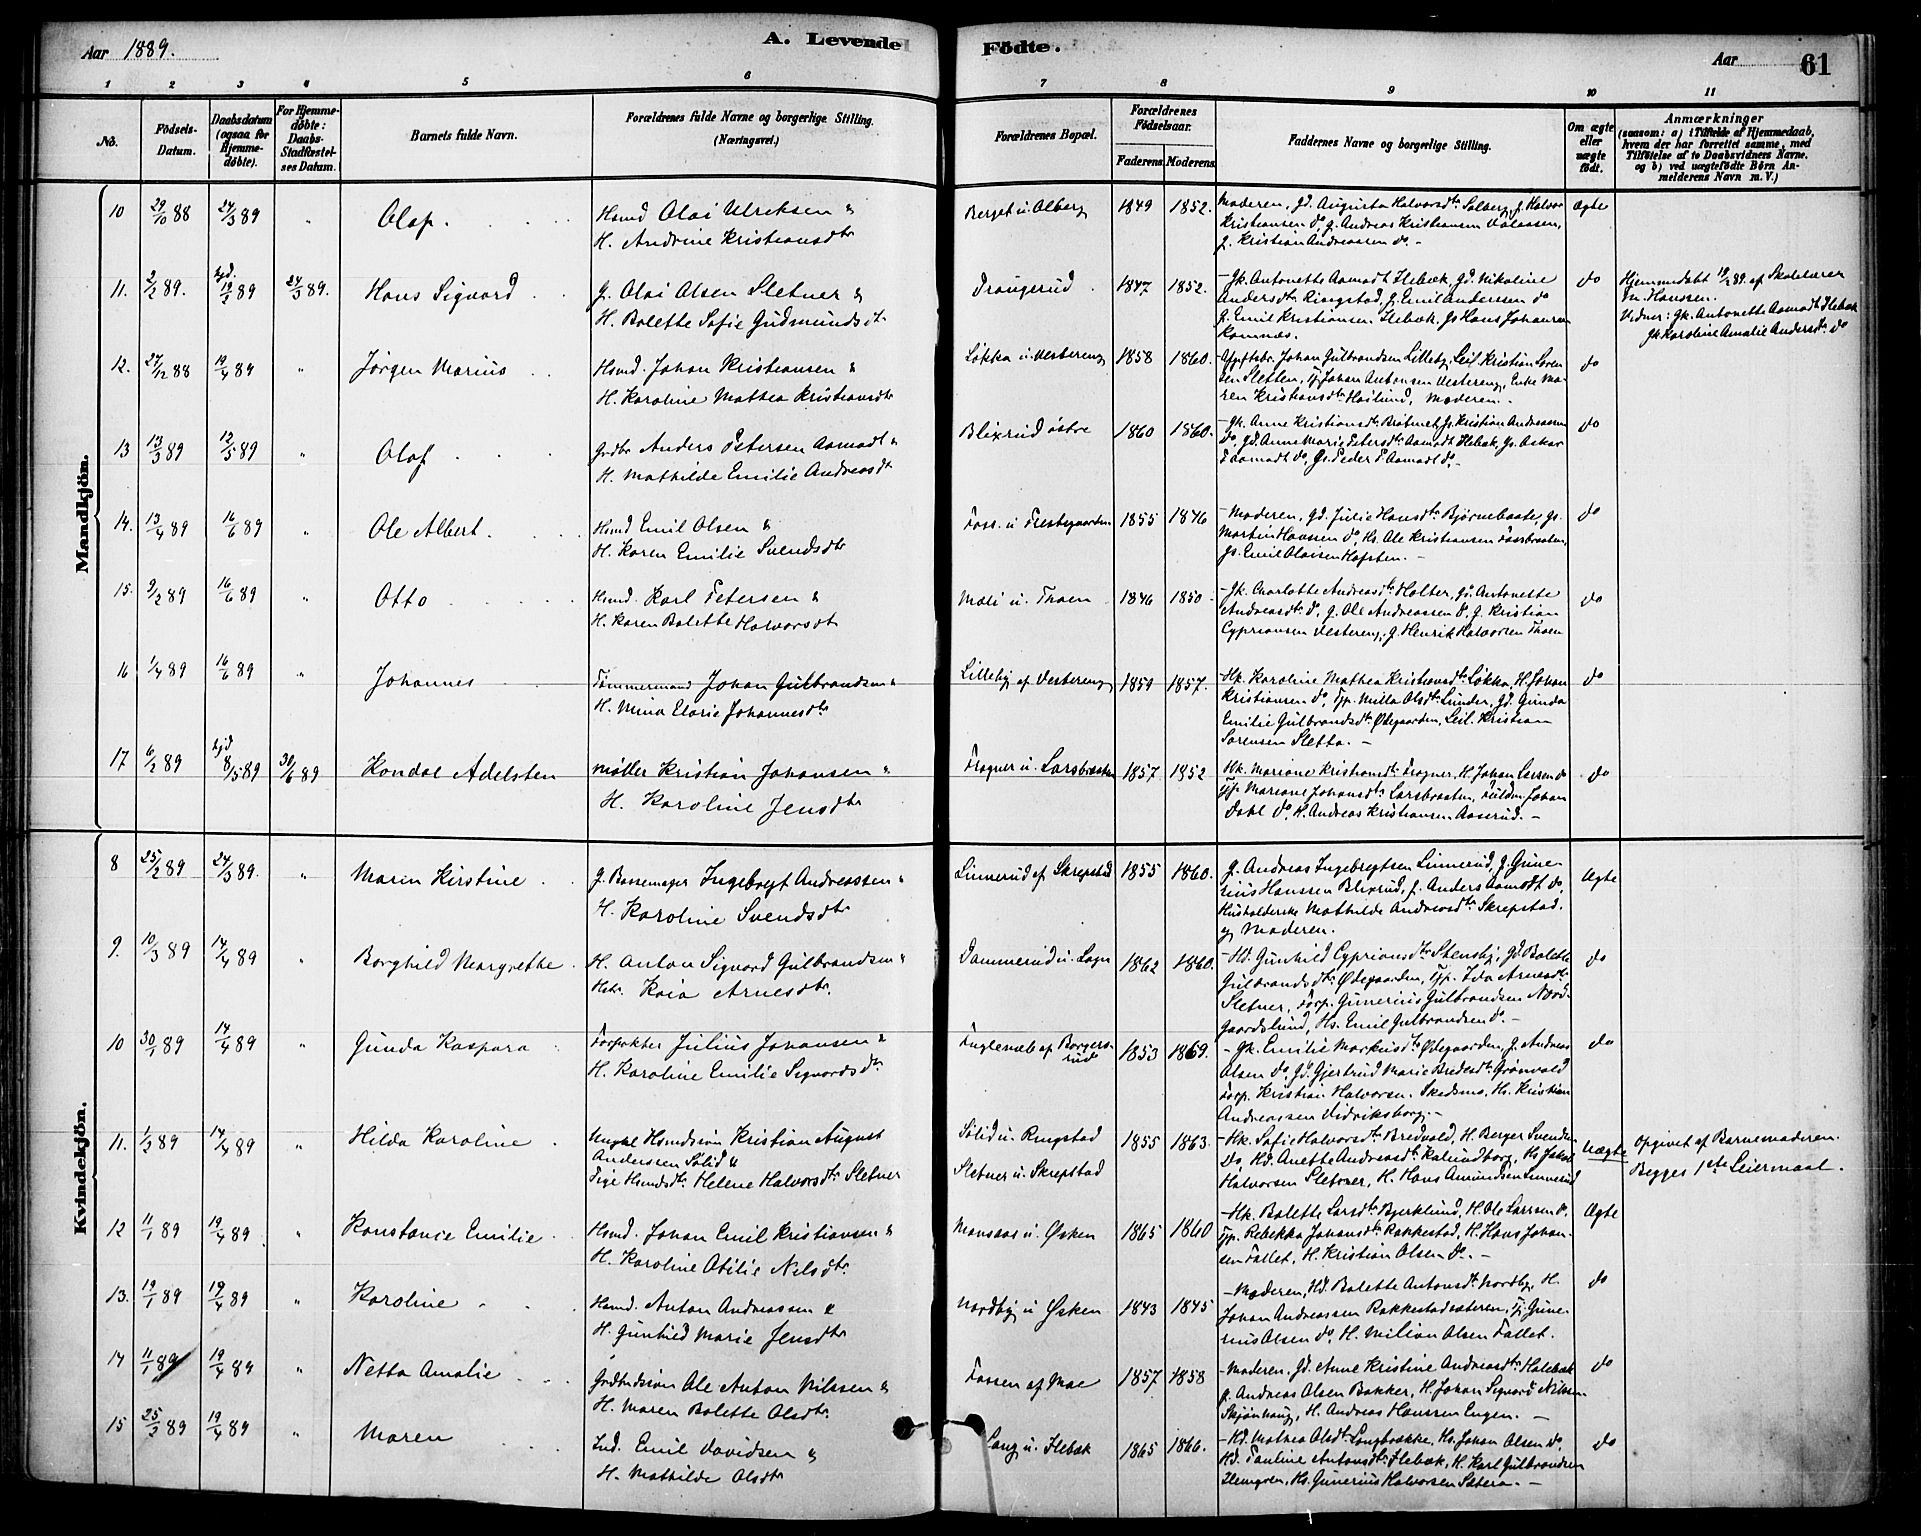 Aar 1889.
A. Levende Födte.
Aar
61
1 2 3 4 5 6 7 8 9 10 11
No.
Födsels-Datum.
Daabsdatum (ogsaa for Hjemme-döbte).
For Hjemme-döbte: Daabs-Stadfæstel-ses Datum.
Barnets fulde Navn.
Forældrenes fulde Navne og borgerlige Stilling. (Næringsvei.)
Forældrenes Bopæl.
Forældrenes Födselsaar.
Faderens. Moderens.
Faddernes Navne og borgerlige Stilling.
Om ægte eller uægte födt.
Anmærkninger
(saasom: a) i Tilfælde af Hjemmedaab, hvem der har forrettet samme, med Tilföielse af to Daabsvidners Navne, og b) ved uægtefödte Börn An-melderens Navn m. V.)
Mandkjön.
10 29/10 88 24/3 89 " Olaf. Husmd Olai Ulriksen &
H. Andrine Kristiansdtr
Berget u. Alberg 1849 1852. Moderen, Gd. Augusta Halvorsdtr Solberg, g. Halvor
Kristiansen do, g. Andreas Kristiansen
g. Kristian Andreassen do. - Ægte
11. 2/2 89. hjd. 19/2 89 24/3 89. Hans Sigvard G. Olai Olsen Sletner &
H. Bolette Sofie Gudmundsdtr
Draugerud 1847 1852. - Gk. Antonette Aamodt Ilebæk, gd. Nikoline
Andersdtr Ringstad, g. Emil Anderssen do
g. Emil Kristiansen Ilebæk, gs Hans Johansen
Komnæs. do
Hjemmedøbt 19/2 89. af Skolelærer
M. Hanssen.
Vidner: Gk. Antonette Aamodt Ilebæk
Gk Karoline Amalie Andersdtr do
12. 27/12 88 19/4 89 " Jørgen Marius Husmd. Johan Kristiansen &
H. Karoline Mathea Kristiansdtr
Løkka u. Vestereng 1858 1860. Johan Gulbrandsen Lilleby, Leil. Kristian Soren-
sen Sletten, Tj. Johan Antonsen Vestereng, Enke Ma-
ren Kristiansdtr Høilund, Moderen. - do
13 13/3 89 12/5 89 " Olaf Grdbr Anders Petersen Aamodt &
H. Mathilde Emilie Andreasdtr
Blixrud østre 1860 1860. - Gk. Anne Kristiansdtr Gs Kristian Andreassen
do, Gd. Anne Marie Petersdtr Aamodt Ilebæk, Gs. Oskar
P Aamodt do, Gs. Peder P. Aamodt do. - do
14. 13/4 89 16/6 89 " Ole Albert. Husmd Emil Olsen &
H. Karen Emilie Svendsdtr
Foss. u Prestegaarden 1855 1846 - Moderen, Gd. Julie Hansdtr Bjørnebaate, gs.
Martin Hanssen do, Hs. Ole Kristiansen Fossbraaten,
gs. Emil Olaisen Kopsten. - do
15. 9/2 89 16/6 89 " Otto Husmd. Karl Petersen &
H. Karen Bolette Halvorsdtr
Moli u. Thoen 1846 1850 - Gk. Charlotte Andreasdtr Holter, gd. Antonette
Andreasdtr do, g. Ole Andreassen do, g. Kristian
Cypriansen Vestereng, g. Henrik Halvorsen Thoen do
16 1/4 89 16/6 89 " Johannes Tømmermand Johan Gulbrandsen &
H. Mina Elorie Johannesdtr
Lilleby af Vestereng 1859 1857. - Hk. Karoline Mathea Kristiansdtr Løkka, H. Johan
Kristiansen do, Tjp. Milla Olsdtr Lunder, Gd. Gunda
Emilie Gulbrandsdtr Ødegaarden, Leil. Kristian
Sorensen Sletta. - do
17 6/2 89 hjd 8/5 89 30/6 89 Kondal Adelsten Møller Kristian Johansen &
H. Karoline Jensdtr
Frogner u. Larsbraaten 1857 1852 - Hk. Mariane Kristiansdtr Frogner, H. Johan Larsen do
Tjp. Mariane Johansdtr Larsbraaten, Johan
Dahl do, H. Andreas Kristiansen Aaserud. - do
Kvindekjön.
8 25/2 89 24/3 89. " Maren Kirstine G. Bøssemager Ingebregt Andreassen &
H. Karoline Svendsdtr
Linnerud af Skrepstad 1855 1860. g. Andreas Ingebregtsen Linnerud, g. Gune-
rius Hanssen Blixrud, g. Anders Aamodt do,
Husholderske Mathilde Andreasdtr Skrepstad
og Moderen. Ægte
9. 10/3 89 14/4 89 " Borghild Margrethe H. Anton Sigvard Gulbrandsen &
Hstr. Kaia Arnesdtr.
Dammerud u. Lagn 1862 1860. - Hd. Gunhild Cypriansdtr Stensby, Gd Bolette
Gulbrandsdtr Ødegaarden, Tjp. Ida Arnesdtr
Sletner, Forp. Gunerius Gulbrandsen Nord-
gaardslund, Hs. Emil Gulbrandsen do. - do
10 30/1 89 14/4 89 " Gunda Kaspara Forpakter Julius Johansen &
H. Karoline Emilie Sigvardsdtr
Fuglenæb af Borgers-
rud 1853 1869. - Gk. Emilie Markusdtr Ødegaarden, g. Andreas
Olsen do, Gd. Gjertrud Marie Bredesdtr Grønvold
Forp. Kristian Halvorsen Skedsmo, Hs. Kristian
Andreassen Vidriksborg. - do
11. 1/3 89 14/4 89 " Hilda Karoline Ungkl Husmdssøn Kristian August
Anderssen Sølid &
Pige Husmdsdtr Helene Halvorsdtr Sletner
Sølid u. Ringstad
Sletner u. Skrepstad 1855 1863. - Hk. Sofie Halvorsdtr Bredvold, H. Berger Svendsen
Do. Hd. Anette Andreasdtr Kalundborg, Hs Jakob
Halvorsen Sletner, H. Hans Amundsen Linnerud Uægte
Opgivet af Barnemoderen.
Begges 1ste Leiermaal.
12 11/1 89 19/4 89. " Konstance Emilie Husmd. Johan Emil Kristiansen &
H. Karoline Otilie Nilsdtr.
Mansaas u. Øsken 1865 1860 - Hk. Bolette Larsdtr Bjerklund, H. Ole Larssen do.
Tjp. Rebekka Johansdtr Rakkestad, H. Hans Johan-
sen Fallet, H. Kristian Olsen do. - Ægte
13. 19/1 89 19/4 89 " Karoline Husmd. Anton Andreassen &
H. Gunhild Marie Jensdtr
Nordby u Øsken 1843 1845 - Moderen, Hd. Bolette Antonsdtr Nordby, H.
Johan Andreassen Rakkestadsæteren, Tj. Gune-
rius Olsen do, H. Milian Olsen Fallet. do
14 11/1 89 19/4 89 " Netta Amalie Grdbrdssøn Ole Anton Nilssen &
H. Maren Bolette Olsdtr
Fossen af Moe 1857 1858 - Moderen, Gd. Anne Kristine Andreasdtr Holebæk
g. Andreas Olsen Bakker, H. Johan Sigvard Nilsen
Skjønhaug, H. Andreas Hanssen Engen. - do
15 25/3 89 19/4 89 " Maren Ind. Emil Davidsen &
H. Mathilde Olsdtr
Lang u. Ilebæk 1865 1866. - Hd. Mathea Olsdtr Langbrække, Hs. Johan Olsen do,
Hd. Pauline Antonsdtr Ilebæk, H. Karl Gulbrandsen
Hs. Gunerius Halvorsen Sætera. - do